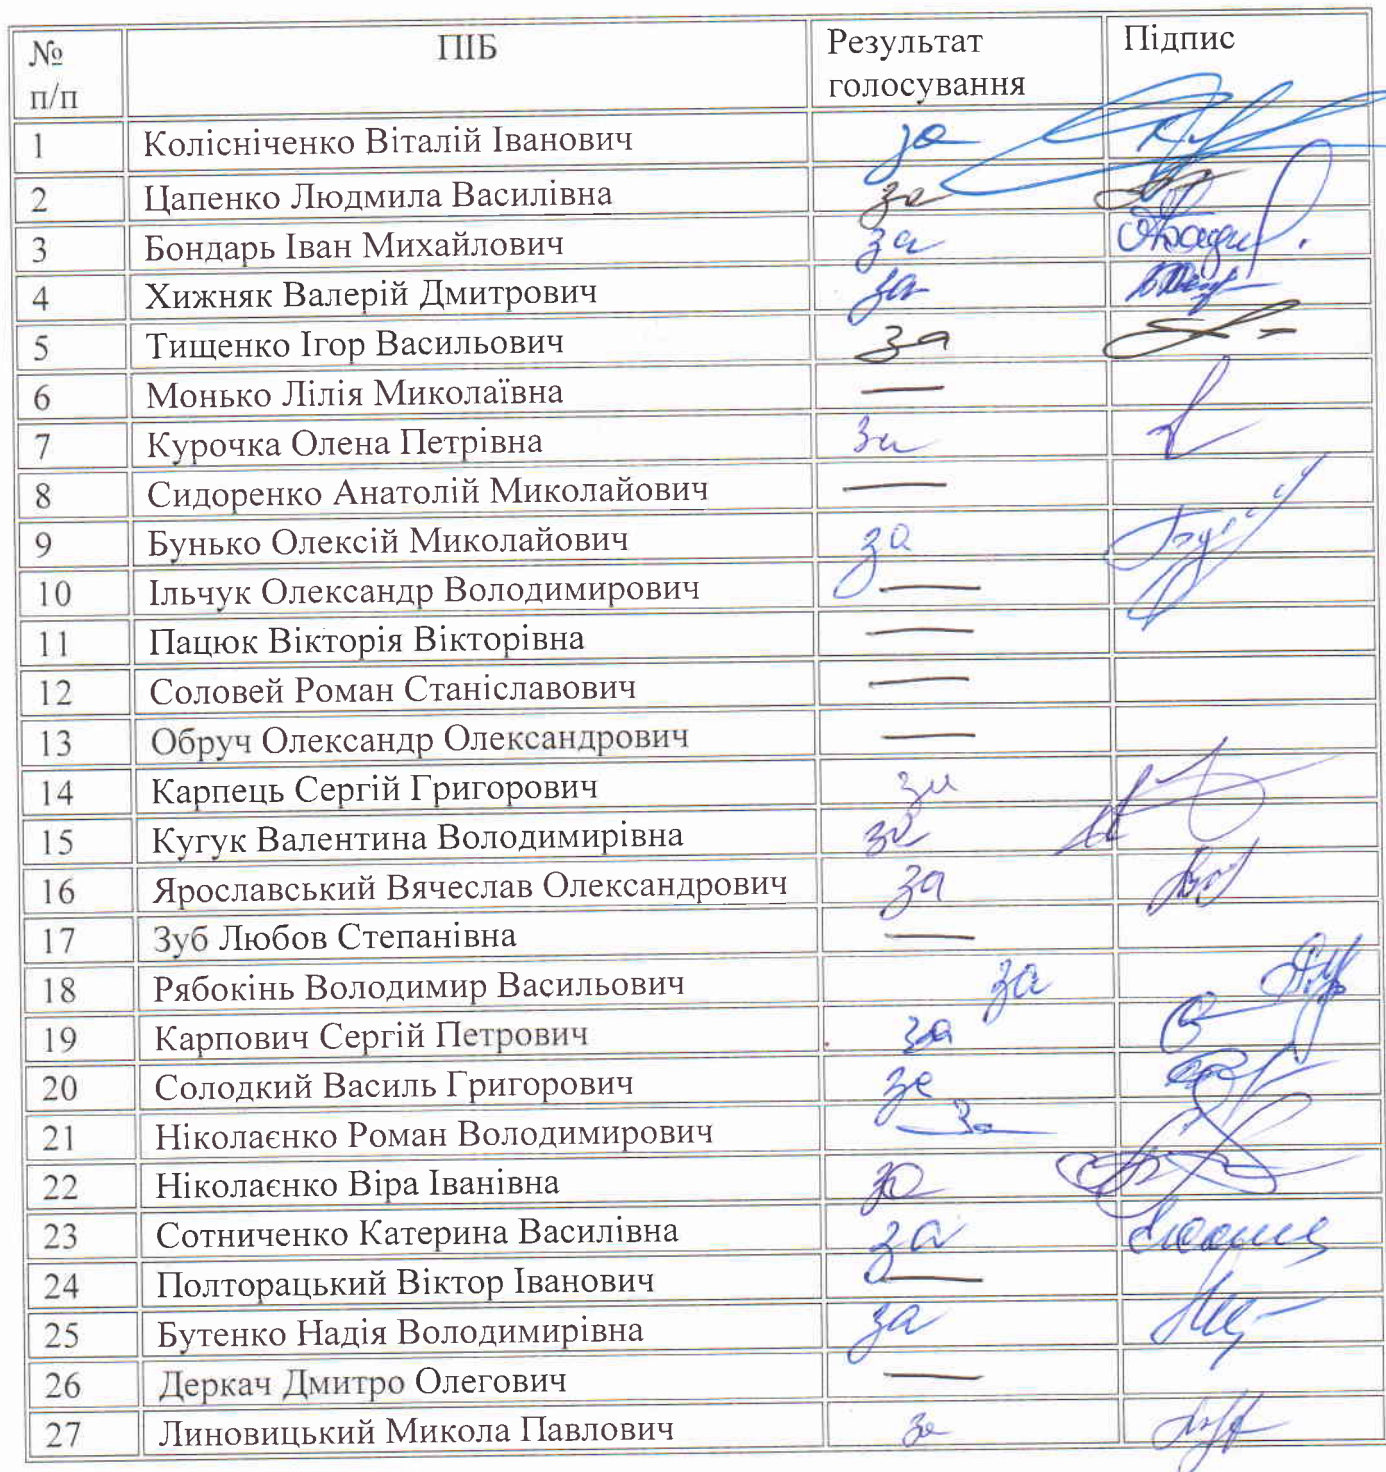 № п/п ПІБ Результат голосування Підпис
1 Колісніченко Віталій Іванович за
2 Цапенко Людмила Василівна за
3 Бондарь Іван Михайлович за
4 Хижняк Валерій Дмитрович за
5 Тищенко Ігор Васильович за
6 Монько Лілія Миколаївна —
7 Курочка Олена Петрівна за
8 Сидоренко Анатолій Миколайович —
9 Бунько Олексій Миколайович за
10 Ільчук Олександр Володимирович —
11 Пацюк Вікторія Вікторівна —
12 Соловей Роман Станіславович —
13 Обруч Олександр Олександрович —
14 Карпець Сергій Григорович за
15 Кугук Валентина Володимирівна за
16 Ярославський Вячеслав Олександрович за
17 Зуб Любов Степанівна —
18 Рябокінь Володимир Васильович за
19 Карпович Сергій Петрович за
20 Солодкий Василь Григорович за
21 Ніколаєнко Роман Володимирович за
22 Ніколаєнко Віра Іванівна за
23 Сотниченко Катерина Василівна за
24 Полторацький Віктор Іванович —
25 Бутенко Надія Володимирівна за
26 Деркач Дмитро Олегович —
27 Линовицький Микола Павлович за